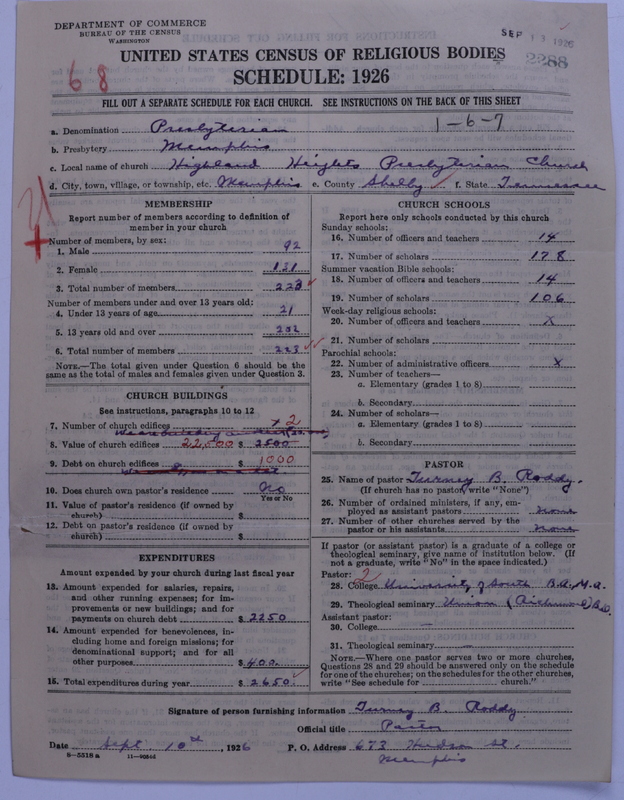 DEPARTMENT OF COMMERCE
BUREAU OF THE CENSUS
WASHINGTON
SEP 13 1926
2288
68
UNITED STATES CENSUS OF RELIGIOUS BODIES
SCHEDULE: 1926
FILL OUT A SEPARATE SCHEDULE FOR EACH CHURCH. SEE INSTRUCTIONS ON THE BACK OF THIS SHEET
1-6-7
a. Denomination Presbyterian
b. Presbytery Memphis
c. Local name of church Highland Heights Presbyterian Church
d. City, town, village, or township, etc. Memphis e. County Shelby f. State Tennessee
MEMBERSHIP
Report number of members according to definition of member in your church
Number of members, by sex:
1. Male 92
2. Female 131
3. Total number of members 223
Number of members under and over 13 years old:
4. Under 13 years of age 21
5. 13 years old and over 202
6. Total number of members 223
NOTE.—The total given under Question 6 should be the same as the total of males and females given under Question 3.
CHURCH BUILDINGS
See instructions, paragraphs 10 to 12
7. Number of church edifices 2
8. Value of church edifices 22,500 $ 2500
9. Debt on church edifices $ 1000
10. Does church own pastor's residence No
Yes or No
11. Value of pastor's residence (if owned by church) $
12. Debt on pastor's residence (if owned by church) $
EXPENDITURES
Amount expended by your church during last fiscal year
13. Amount expended for salaries, repairs, and other running expenses; for improvements or new buildings; and for payments on church debt $ 2250
14. Amount expended for benevolences, including home and foreign missions; for denominational support; and for all other purposes $ 400.
15. Total expenditures during year $ 2650
CHURCH SCHOOLS
Report here only schools conducted by this church
Sunday schools:
16. Number of officers and teachers 14
17. Number of scholars 178
Summer vacation Bible schools:
18. Number of officers and teachers 14
19. Number of scholars 106
Week-day religious schools:
20. Number of officers and teachers X
21. Number of scholars
Parochial schools:
22. Number of administrative officers X
23. Number of teachers—
a. Elementary (grades 1 to 8)
b. Secondary
24. Number of scholars—
a. Elementary (grades 1 to 8)
b. Secondary
PASTOR
25. Name of pastor Turney B. Roddy.
(If church has no pastor, write "None")
26. Number of ordained ministers, if any, employed as assistant pastors none
27. Number of other churches served by the pastor or his assistants none
If pastor (or assistant pastor) is a graduate of a college or theological seminary, give name of institution below. (If not a graduate, write "No" in the space indicated.)
Pastor: 2
28. College University of South B.A., M.A.
29. Theological seminary Union (Richmond) B.D.
Assistant pastor:
30. College —
31. Theological seminary —
NOTE.—Where one pastor serves two or more churches, Questions 28 and 29 should be answered only on the schedule for one of the churches; on the schedules for the other churches, write "See schedule for church."
Signature of person furnishing information Turney B. Roddy
Official title Pastor
Date Sept. 10th, 1926 P. O. Address 673 Hudson St.
Memphis
9—5318 a 11—9064d